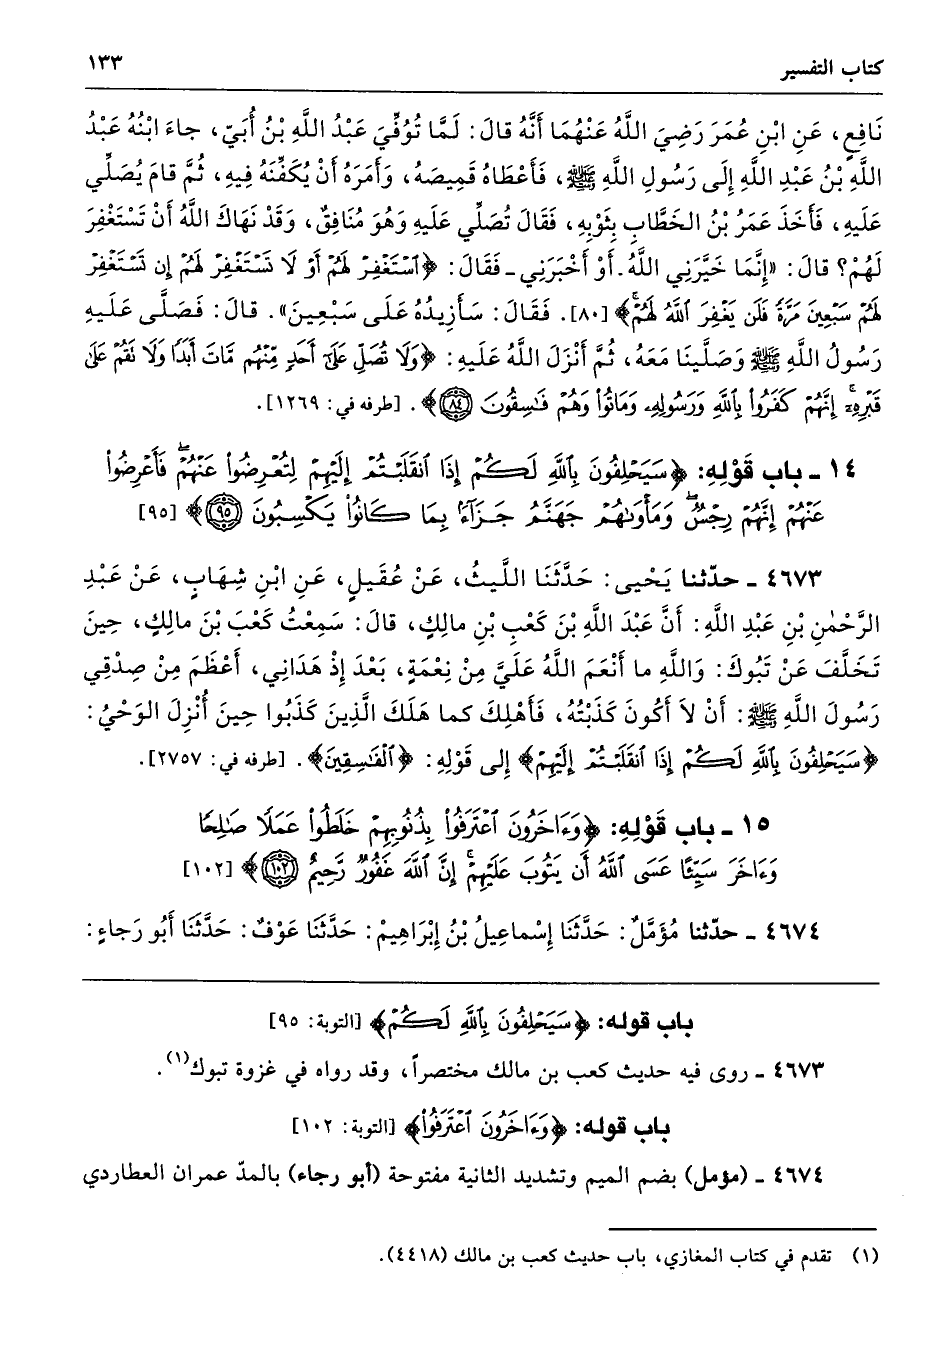 كتاب التفسير ١٣٣
نَافِعٍ، عَنِ ابْنِ عُمَرَ رَضِيَ اللَّهُ عَنْهُمَا أَنَّهُ قالَ: لَمَّا تُوُفِّيَ عَبْدُ اللَّهِ بْنُ أُبَيٍّ، جاءَ ابْنُهُ عَبْدُ
اللَّهِ بْنُ عَبْدِ اللَّهِ إِلَى رَسُولِ اللَّهِ ﷺ، فَأَعْطَاهُ قَمِيصَهُ، وَأَمَرَهُ أَنْ يُكَفِّنَهُ فِيهِ، ثُمَّ قامَ يُصَلِّي
عَلَيهِ، فَأَخَذَ عَمَرُ بْنُ الخَطَّابِ بِثَوْبِهِ، فَقَالَ تُصَلِّي عَلَيهِ وَهُوَ مُنَافِقٌ، وَقَدْ نَهَاكَ اللَّهُ أَنْ تَسْتَغْفِرَ
لَهُمْ؟ قالَ: «إِنَّمَا خَيَّرَنِي اللَّهُ ـ أَوْ أَخْبَرَنِي ـ فَقَالَ: ﴿ٱسْتَغْفِرْ لَهُمْ أَوْ لَا تَسْتَغْفِرْ لَهُمْ إِن تَسْتَغْفِرْ
لَهُمْ سَبْعِينَ مَرَّةً فَلَن يَغْفِرَ ٱللَّهُ لَهُمْ﴾ [٨٠]. فَقَالَ: سَأَزِيدُهُ عَلَى سَبْعِينَ». قالَ: فَصَلَّى عَلَيهِ
رَسُولُ اللَّهِ ﷺ وَصَلَّينَا مَعَهُ، ثُمَّ أَنْزَلَ اللَّهُ عَلَيهِ: ﴿وَلَا تُصَلِّ عَلَىٰٓ أَحَدٍ مِّنْهُم مَّاتَ أَبَدًا وَلَا نَقُمْ عَلَىٰ
قَبْرِهِۦٓ إِنَّهُمْ كَفَرُوا۟ بِٱللَّهِ وَرَسُولِهِۦ وَمَاتُوا۟ وَهُمْ فَٰسِقُونَ ٨٤﴾. [طرفه في: ١٢٦٩].
١٤ ـ باب قَوْلِهِ: ﴿سَيَحْلِفُونَ بِٱللَّهِ لَكُمْ إِذَا ٱنقَلَبْتُمْ إِلَيْهِمْ لِتُعْرِضُوا۟ عَنْهُمْ فَأَعْرِضُوا۟
عَنْهُمْ إِنَّهُمْ رِجْسٌ وَمَأْوَىٰهُمْ جَهَنَّمُ جَزَآءًۢ بِمَا كَانُوا۟ يَكْسِبُونَ ٩٥﴾ [٩٥]
٤٦٧٣ ـ حدّثنا يَحْيى: حَدَّثَنَا اللَّيثُ، عَنْ عُقَيلٍ، عَنِ ابْنِ شِهَابٍ، عَنْ عَبْدِ
الرَّحْمٰنِ بْنِ عَبْدِ اللَّهِ: أَنَّ عَبْدَ اللَّهِ بْنَ كَعْبِ بْنِ مالِكٍ، قالَ: سَمِعْتُ كَعْبَ بْنَ مالِكٍ، حِينَ
تَخَلَّفَ عَنْ تَبُوكَ: وَاللَّهِ ما أَنْعَمَ اللَّهُ عَلَيَّ مِنْ نِعْمَةٍ، بَعْدَ إِذْ هَدَانِي، أَعْظَمَ مِنْ صِدْقِي
رَسُولَ اللَّهِ ﷺ: أَنْ لاَ أَكُونَ كَذَبْتُهُ، فَأَهْلِكَ كما هَلَكَ الَّذِينَ كَذَبُوا حِينَ أُنْزِلَ الوَحْيُ:
﴿سَيَحْلِفُونَ بِٱللَّهِ لَكُمْ إِذَا ٱنقَلَبْتُمْ إِلَيْهِمْ﴾ إِلى قَوْلِهِ: ﴿ٱلْفَٰسِقِينَ﴾. [طرفه في: ٢٧٥٧].
١٥ ـ باب قَوْلِهِ: ﴿وَءَاخَرُونَ ٱعْتَرَفُوا۟ بِذُنُوبِهِمْ خَلَطُوا۟ عَمَلًا صَٰلِحًا
وَءَاخَرَ سَيِّئًا عَسَى ٱللَّهُ أَن يَتُوبَ عَلَيْهِمْ إِنَّ ٱللَّهَ غَفُورٌ رَّحِيمٌ ١٠٢﴾ [١٠٢]
٤٦٧٤ ـ حدّثنا مُؤَمَّلٌ: حَدَّثَنَا إِسْماعِيلُ بْنُ إِبْرَاهِيمْ: حَدَّثَنَا عَوْفٌ: حَدَّثَنَا أَبُو رَجاءٍ:
باب قوله: ﴿سَيَحْلِفُونَ بِٱللَّهِ لَكُمْ﴾ [التوبة: ٩٥]
٤٦٧٣ ـ روى فيه حديث كعب بن مالك مختصراً، وقد رواه في غزوة تبوك(١).
باب قوله: ﴿وَءَاخَرُونَ ٱعْتَرَفُوا۟﴾ [التوبة: ١٠٢]
٤٦٧٤ ـ (مؤمل) بضم الميم وتشديد الثانية مفتوحة (أبو رجاء) بالمدّ عمران العطاردي
(١) تقدم في كتاب المغازي، باب حديث كعب بن مالك (٤٤١٨).